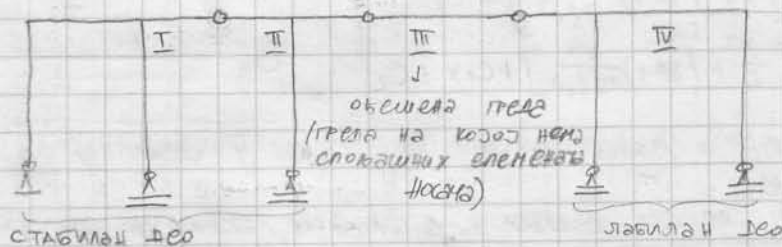 I II III IV
ОБЕШЕНА ГРЕДА
(ГРЕДА НА КОЈОЈ НЕМА
СПОЉАШНИХ ЕЛЕМЕНАТА
НОСАЧА)
СТАБИЛАН ДЕО ЛАБИЛАН ДЕО